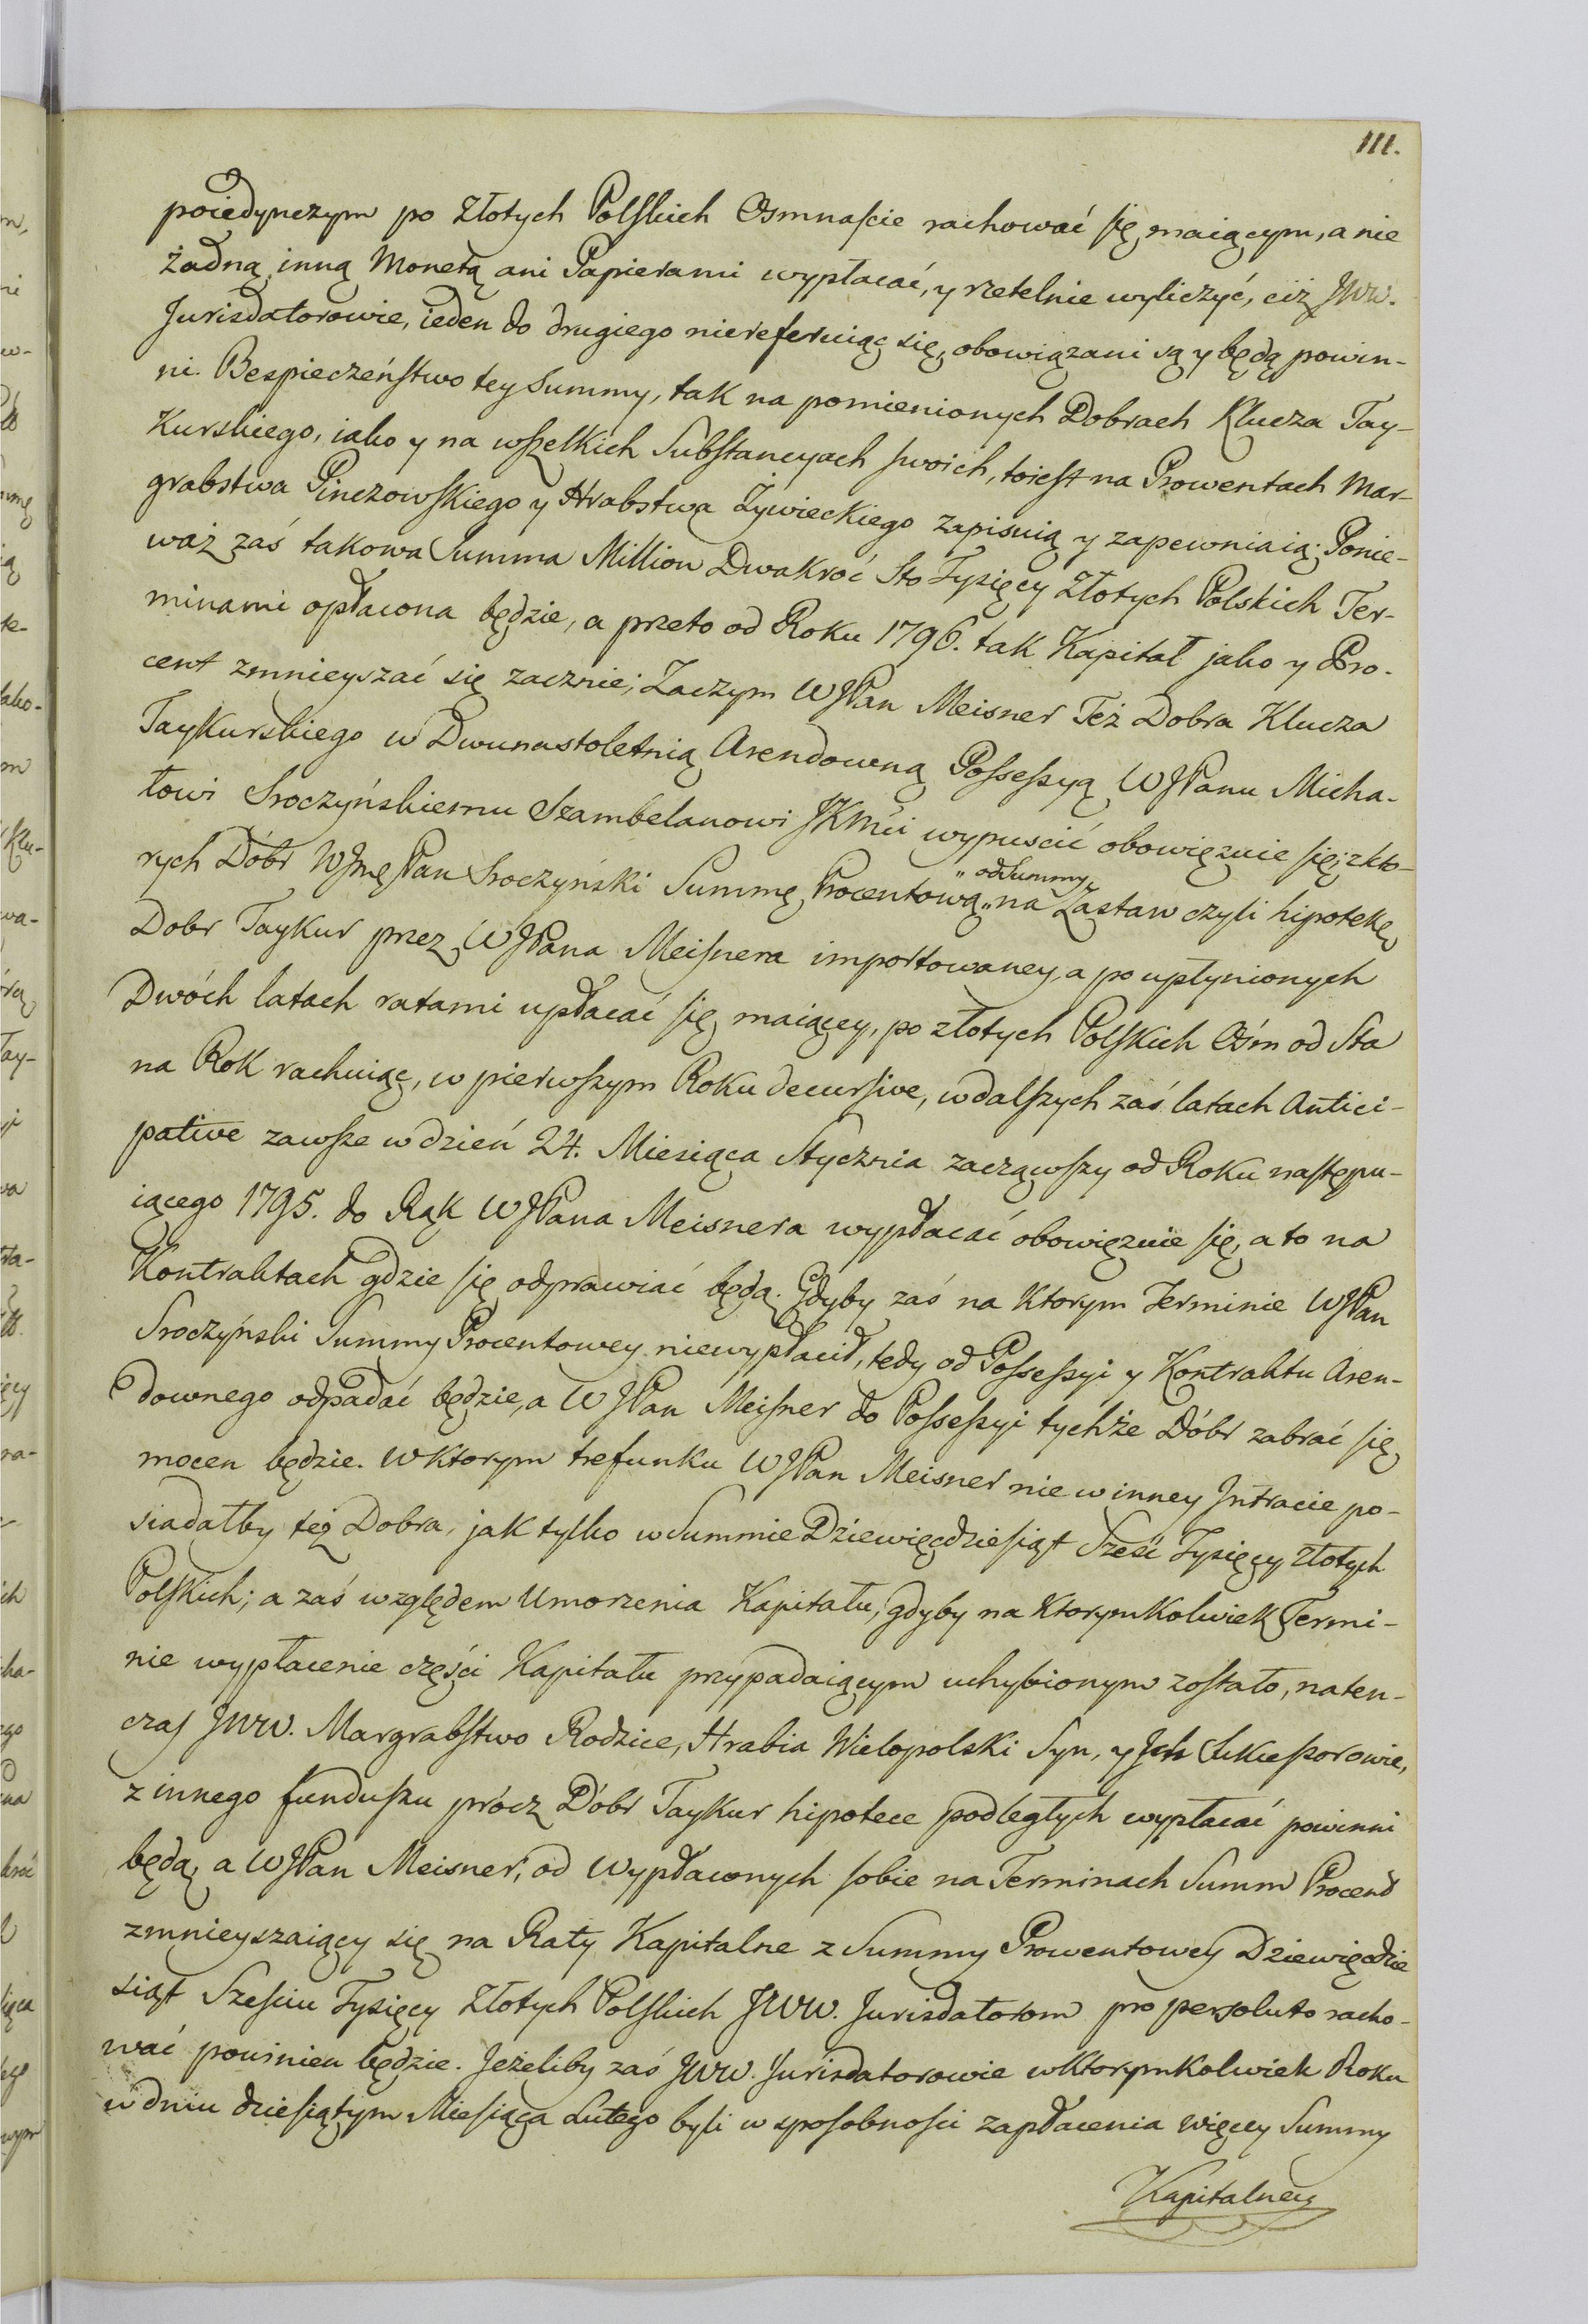 111.
poiedynczym po Złotych Polskich Osmnaście rachować się maiącym, a nie
żadną inną Monetą ani Papierami wypłacać, y rzetelnie wyliczyć, ciż JWW.
Jurisdatorowie, ieden do drugiego niereferuiąc się, obowiązani są y będą powin-
ni. Bespieczeństwo tey Summy, tak na pomienionych Dobrach Klucza Tay-
Kurskiego, iako y na wszelkich Substancyach swoich, toiest na Prowentach Mar-
grabstwa Pinczowskiego y Hrabstwa Żywieckiego zapisuią y zapewniaią; Ponie-
waż zaś takowa Summa Million Dwakroć Sto Tysięcy Złotych Polskich Ter-
minami opłacona będzie, a przeto od Roku 1796. tak Kapitał jako y Pro-
cent zmnieyszać się zacznie; Zaczym WJPan Meisner Też Dobra Klucza
Taykurskiego w Dwunastoletnią Arendowną Possessyą WJPanu Micha-
łowi Sroczyńskiemu Szambelanowi JKMci wypuscić obowięzuie się; z kto-
rych Dóbr WJmę Pan Sroczyński Summę Procentową „od Summy„ na Zastaw czyli hipotekę
Dobr Taykur przez WJPana Meisnera importowaney, a po upłynionych
Dwóch latach ratami upłacać się maiącey, po złotych Polskich Ośm od Sta
na Rok rachuiąc, w pierwszym Roku decursive, w dalszych zaś latach Antici-
pative zawsze w dzień 24. Miesiąca Stycznia zacząwszy od Roku następu-
iącego 1795. do Rąk WJPana Meisnera wypłacać obowięzuie się, a to na
Kontraktach gdzie się odprawiać będą. Gdyby zaś na Ktorym Terminie WJPan
Sroczyński Summy Procentowey niewypłacił, tedy od Possessyi y Kontraktu Aren-
downego odpadać będzie, a WJPan Meisner do Possessyi tychże Dóbr zabrać się
mocen będzie. W Ktorym trefunku WJPan Meisner nie w inney Intracie po-
siadałby też Dobra, jak tylko w Summie Dziewięćdziesiąt Sześć Tysięcy Złotych
Polskich; a zaś względem Umorzenia Kapitału, gdyby na Ktorymkolwiek Termi-
nie wypłacenie części Kapitału przypadaiącym uchybionym zostało, naten-
czas JWW. Margrabstwo Rodzice, Hrabia Wielopolski Syn, y Ich Sukcessorowie,
z innego funduszu prócz Dóbr Taykur hipotece podległych wypłacać powinni
będą, a WJPan Meisner, od wypłaconych sobie na Terminach Summ Procend
zmnieyszaiący się na Raty Kapitalne z Summy Prowentowey Dziewięćdzie
siąt Sześciu Tysięcy Złotych Polskich JWW. Jurisdatorom pro persoluto racho-
wać powinien będzie. Jeżeliby zaś JWW. Jurisdatorowie w Ktorymkolwiek Roku
w dniu dziesiątym Miesiąca Lutego byli w sposobności zapłacenia więcey Summy
Kapitalney